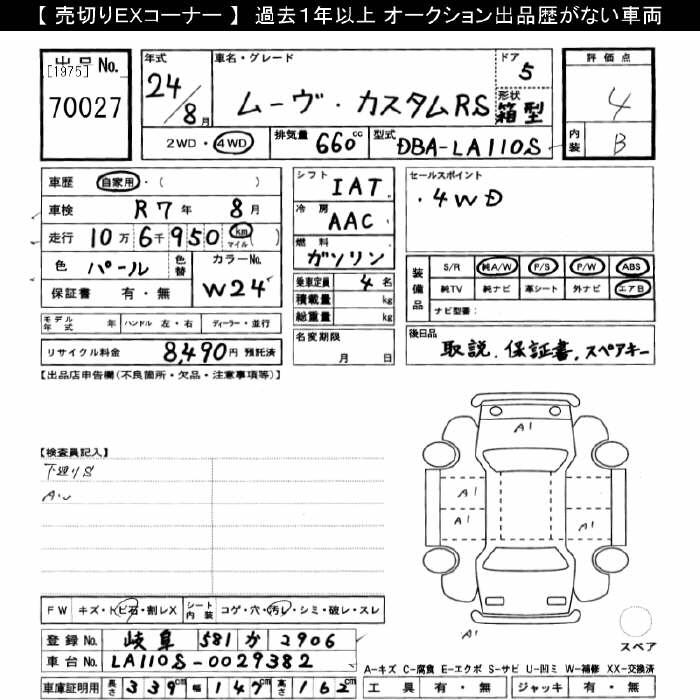 【 売切りEXコーナー 】 過去1年以上 オークション出品歴がない車両
出品No.
[1975]
70027
年式
24/8月
車名・グレード
ムーヴ・カスタムRS
ドア
5
形状
箱型
評価点
4
内装
B
2WD・4WD
排気量
660cc
型式
DBA-LA110S
車歴 自家用・( )
車検 R7年 8月
走行 10万6千950 km マイル ( )
色 パール 色替
カラーNo.
W24
保証書 有・無
シフト
IAT
冷房
AAC
燃料
ガソリン
乗車定員 4名
積載量 kg
総重量 kg
セールスポイント
・4WD
装備品
S/R 純A/W P/S P/W ABS
純TV 純ナビ 革シート 外ナビ エアB
ナビ型番:
モデル年式 年 ハンドル 左・右 ディーラー・並行
リサイクル料金 8,490円 預託済
名変期限
月 日
後日品
取説、保証書、スペアキー
【出品店申告欄(不良箇所・欠品・注意事項等)】
【検査員記入】
下廻りS
A1
A1
A1
A1
A1
スペア
FW キズ・トビ石・割レX シート内装 コゲ・穴・汚レ・シミ・破レ・スレ
登録No. 岐阜 581 か 2906
車台No. LA110S-0029382
車庫証明用 長さ 339cm 幅 147cm 高さ 162cm
A-キズ C-腐食 E-エクボ S-サビ U-凹ミ W-補修 XX-交換済
工具 有・無 ジャッキ 有・無